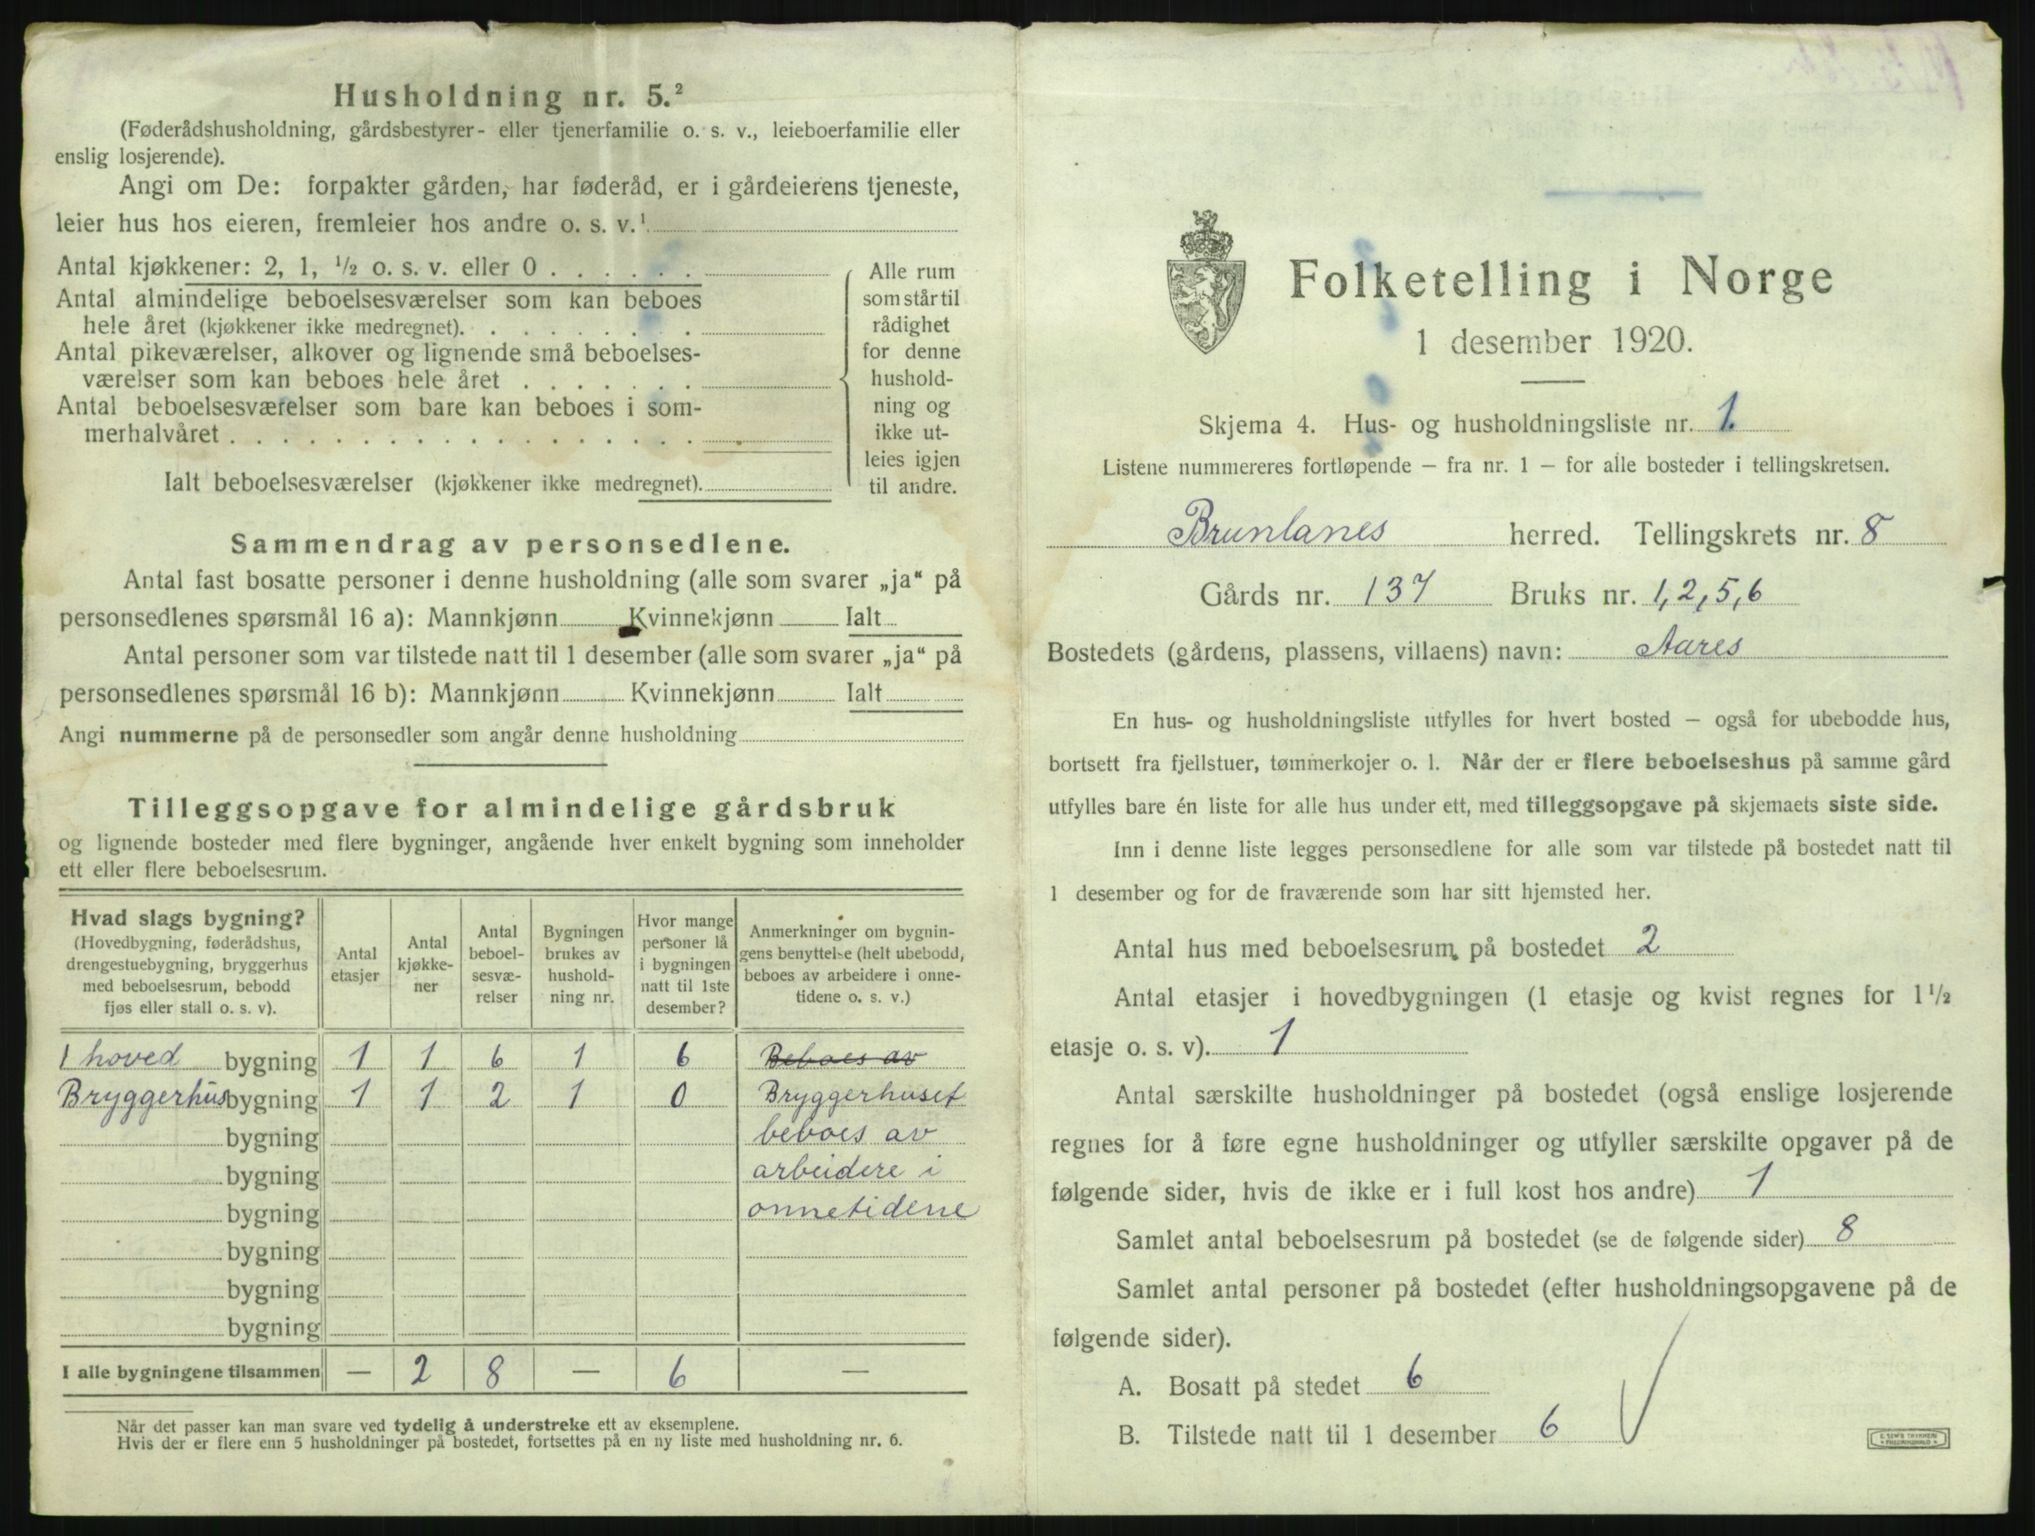 Husholdning nr. 5.²
(Føderådshusholdning, gårdsbestyrer- eller tjenerfamilie o. s. v., leieboerfamilie eller
enslig losjerende).
Angi om De: forpakter gården, har føderåd, er i gårdeierens tjeneste,
leier hus hos eieren, fremleier hos andre o. s. v.¹
Antal kjøkkener: 2, 1, ½ o. s. v. eller 0 . . . . . .
Antal almindelige beboelsesværelser som kan beboes
hele året (kjøkkener ikke medregnet). . . . . . . . .
Antal pikeværelser, alkover og lignende små beboelses-
værelser som kan beboes hele året . . . . . . .
Antal beboelsesværelser som bare kan beboes i som-
merhalvåret . . . . . . . . . . . . . . . . . .
Ialt beboelsesværelser (kjøkkener ikke medregnet).
Alle rum
som står til
rådighet
for denne
hushold-
ning og
ikke ut-
leies igjen
til andre.
Sammendrag av personsedlene.
Antal fast bosatte personer i denne husholdning (alle som svarer „ja“ på
personsedlenes spørsmål 16 a): Mannkjønn Kvinnekjønn Ialt
Antal personer som var tilstede natt til 1 desember (alle som svarer „ja“ på
personsedlenes spørsmål 16 b): Mannkjønn Kvinnekjønn Ialt
Angi nummerne på de personsedler som angår denne husholdning
Tilleggsopgave for almindelige gårdsbruk
og lignende bosteder med flere bygninger, angående hver enkelt bygning som inneholder
ett eller flere beboelsesrum.
Hvad slags bygning?
(Hovedbygning, føderådshus,
drengestuebygning, bryggerhus
med beboelsesrum, bebodd
fjøs eller stall o. s. v).
Antal
etasjer
Antal
kjøkke-
ner
Antal
beboel-
sesvæ-
relser
Bygningen
brukes av
hushold-
ning nr.
Hvor mange
personer lå
i bygningen
natt til 1ste
desember?
Anmerkninger om bygnin-
gens benyttelse (helt ubebodd,
beboes av arbeidere i onne-
tidene o. s. v.)
1 hoved bygning 1 1 6 1 6 Beboes av
Bryggerhus bygning 1 1 2 1 0 Bryggerhuset
bygning beboes av
bygning arbeidere i
bygning onnetidene
bygning
bygning
bygning
I alle bygningene tilsammen — 2 8 — 6 —
Når det passer kan man svare ved tydelig å understreke ett av eksemplene.
Hvis der er flere enn 5 husholdninger på bostedet, fortsettes på en ny liste med husholdning nr. 6.
Folketelling i Norge
1 desember 1920.
Skjema 4. Hus- og husholdningsliste nr. 1.
Listene nummereres fortløpende – fra nr. 1 – for alle bosteder i tellingskretsen.
Brunlanes herred. Tellingskrets nr. 8
Gårds nr. 137 Bruks nr. 1,2,5,6
Bostedets (gårdens, plassens, villaens) navn: Aares
En hus- og husholdningsliste utfylles for hvert bosted – også for ubebodde hus,
bortsett fra fjellstuer, tømmerkojer o. l. Når der er flere beboelseshus på samme gård
utfylles bare én liste for alle hus under ett, med tilleggsopgave på skjemaets siste side.
Inn i denne liste legges personsedlene for alle som var tilstede på bostedet natt til
1 desember og for de fraværende som har sitt hjemsted her.
Antal hus med beboelsesrum på bostedet 2
Antal etasjer i hovedbygningen (1 etasje og kvist regnes for 1½
etasje o. s. v). 1
Antal særskilte husholdninger på bostedet (også enslige losjerende
regnes for å føre egne husholdninger og utfyller særskilte opgaver på de
følgende sider, hvis de ikke er i full kost hos andre) 1
Samlet antal beboelsesrum på bostedet (se de følgende sider) 8
Samlet antal personer på bostedet (efter husholdningsopgavene på de
følgende sider).
A. Bosatt på stedet 6
B. Tilstede natt til 1 desember 6